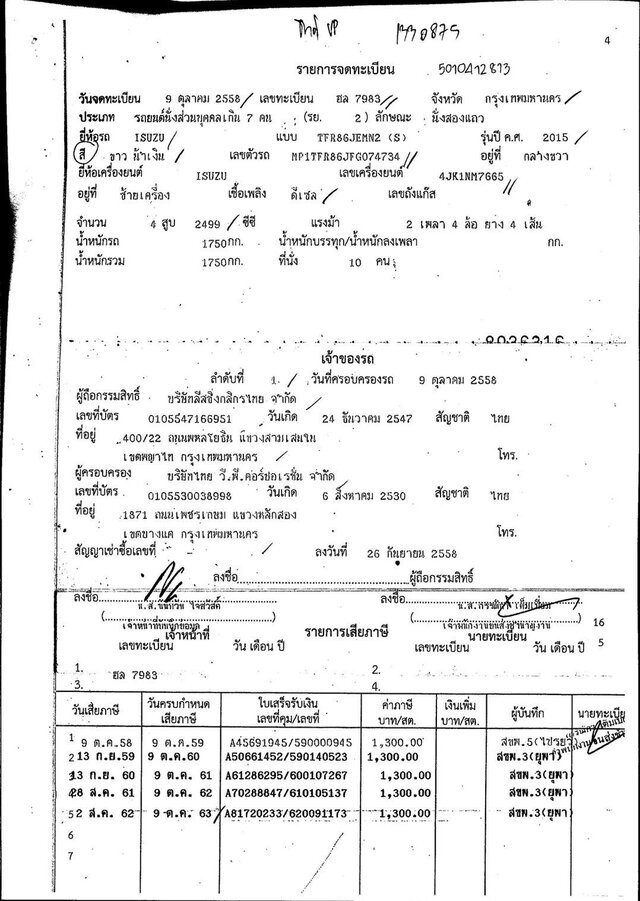 1330875
4
รายการจดทะเบียน 5010412813
วันจดทะเบียน 9 ตุลาคม 2558 เลขทะเบียน ฮล 7983 จังหวัด กรุงเทพมหานคร
ประเภท รถยนต์นั่งส่วนบุคคลเกิน 7 คน (รย. 2) ลักษณะ นั่งสองแถว
ยี่ห้อรถ ISUZU แบบ TFR86JEMN2 (S) รุ่นปี ค.ศ. 2015
สี ขาว น้ำเงิน เลขตัวรถ MP1TFR86JFG074734 อยู่ที่ กลางขวา
ยี่ห้อเครื่องยนต์ ISUZU เลขเครื่องยนต์ 4JK1NM7665
อยู่ที่ ซ้ายเครื่อง เชื้อเพลิง ดีเซล เลขถังแก๊ส
จำนวน 4 สูบ 2499 ซีซี แรงม้า 2 เพลา 4 ล้อ ยาง 4 เส้น
น้ำหนักรถ 1750กก. น้ำหนักบรรทุก/น้ำหนักลงเพลา กก.
น้ำหนักรวม 1750กก. ที่นั่ง 10 คน
เจ้าของรถ
ลำดับที่ 1 วันที่ครอบครองรถ 9 ตุลาคม 2558
ผู้ถือกรรมสิทธิ์ บริษัทลีสซิ่งกสิกรไทย จำกัด
เลขที่บัตร 0105547166951 วันเกิด 24 ธันวาคม 2547 สัญชาติ ไทย
ที่อยู่ 400/22 ถนนพหลโยธิน แขวงสามเสนใน
เขตพญาไท กรุงเทพมหานคร โทร.
ผู้ครอบครอง บริษัทไทย วี.พี.คอร์ปอเรชั่น จำกัด
เลขที่บัตร 0105530038998 วันเกิด 6 สิงหาคม 2530 สัญชาติ ไทย
ที่อยู่ 1871 ถนนเพชรเกษม แขวงหลักสอง
เขตบางแค กรุงเทพมหานคร โทร.
สัญญาเช่าซื้อเลขที่ - ลงวันที่ 26 กันยายน 2558
ลงชื่อ ผู้ถือกรรมสิทธิ์
ลงชื่อ ลงชื่อ
16
เจ้าหน้าที่ รายการเสียภาษี นายทะเบียน
เลขทะเบียน วัน เดือน ปี เลขทะเบียน วัน เดือน ปี 5
1. ฮล 7983 2.
3. 4.
วันเสียภาษี วันครบกำหนดเสียภาษี ใบเสร็จรับเงิน เลขที่คุม/เลขที่ ค่าภาษี บาท/สต. เงินเพิ่ม บาท/สต. ผู้บันทึก
1 9 ต.ค.58 9 ต.ค.59 A45691945/590000945 1,300.00
2 13 ก.ย.59 9 ต.ค.60 A50661452/590140523 1,300.00 สขพ.3(ยุพา)
3 13 ก.ย. 60 9 ต.ค. 61 A61286295/600107267 1,300.00 สขพ.3(ยุพา)
4 28 ส.ค. 61 9 ต.ค. 62 A70288847/610105137 1,300.00 สขพ.3(ยุพา)
5 2 ส.ค. 62 9 ต.ค. 63 A81720233/620091173 1,300.00 สขพ.3(ยุพา)
6
7